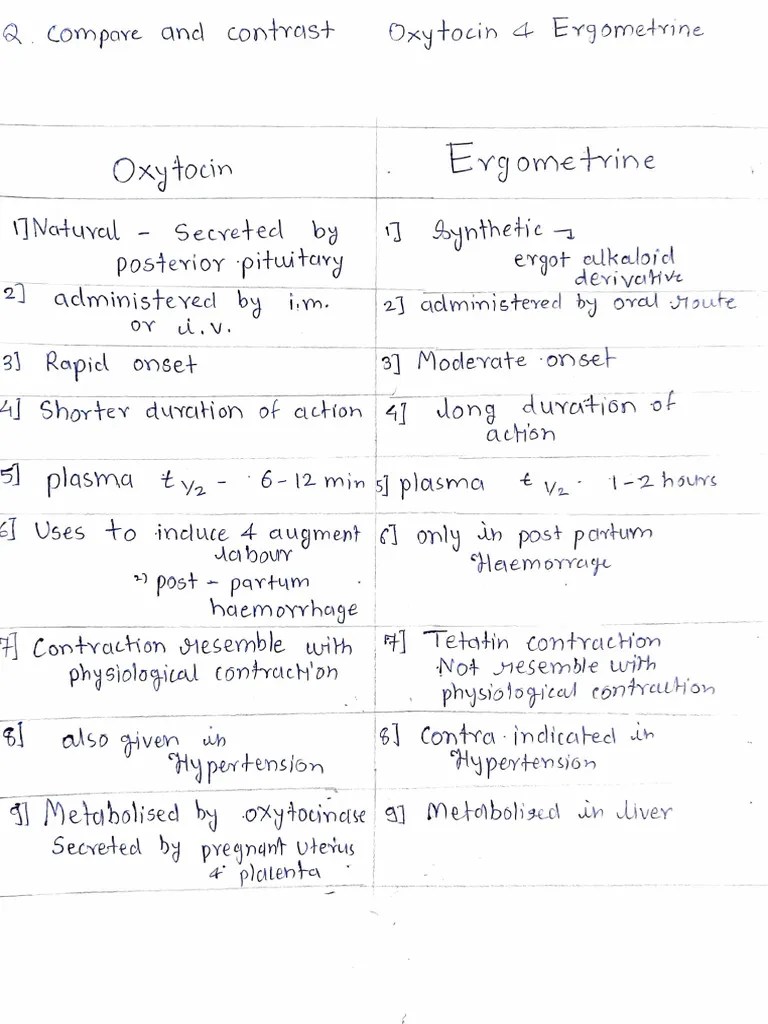 Q. Compare and contrast Oxytocin & Ergometrine
Oxytocin
Ergometrine
1] Natural - Secreted by
posterior pituitary
1] Synthetic →
ergot alkaloid
derivative
2] administered by i.m.
or i.v.
2] administered by oral route
3] Rapid onset
3] Moderate onset
4] Shorter duration of action
4] long duration of
action
5] plasma t 1/2 - 6-12 min
5] plasma t 1/2 . 1-2 hours
6] Uses to induce & augment
labour
2) post - partum
haemorrhage
6] only in post partum
Haemorrage
7] Contraction resemble with
physiological contraction
7] Tetatin contraction
Not resemble with
physiological contraction
8] also given in
Hypertension
8] Contra indicated in
Hypertension
9] Metabolised by oxytocinase
Secreted by pregnant Uterus
& plalenta
9] Metabolised in liver